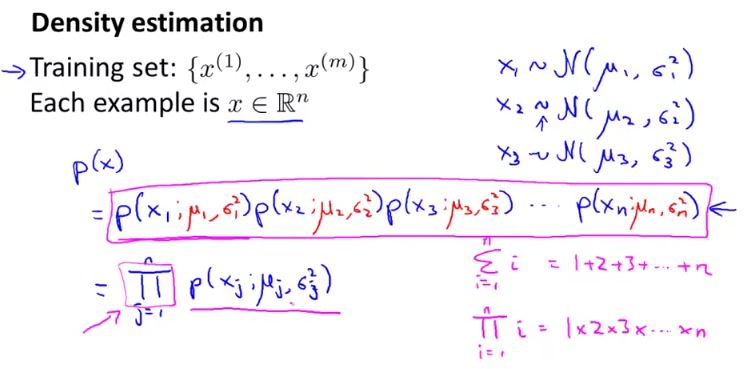 Density estimation
→ Training set: {x^(1), . . . , x^(m)}
Each example is x ∈ ℝ^n
x₁ ~ N(μ₁, σ₁²)
x₂ ~ N(μ₂, σ₂²)
x₃ ~ N(μ₃, σ₃²)
p(x)
= p(x₁; μ₁, σ₁²) p(x₂; μ₂, σ₂²) p(x₃; μ₃, σ₃²) ··· p(xₙ; μₙ, σₙ²) ←
= ∏_{j=1}^{n} p(xⱼ; μⱼ, σⱼ²)
∑_{i=1}^{n} i = 1+2+3+···+n
∏_{i=1}^{n} i = 1×2×3×···×n